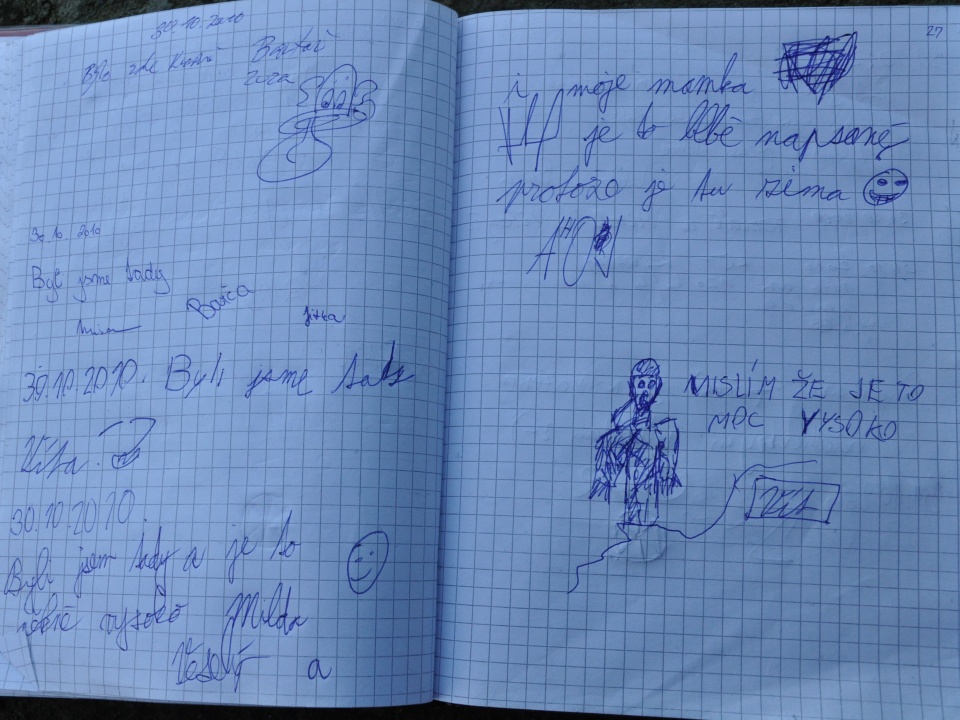 30.10.2010
Byla zde
30.10. 2010
Byli jsme tady
Barča
Jitka
30.10.2010. Byli jsme tady
Víťa.
30.10.2010.
Byli jsem tady a je to
vysoko Milda
Veselý a
27
i moje mamka
je to blbě napsané
protože je tu zima
AHOJ
MISLÍM ŽE JE TO
MOC VYSOKO
Vít